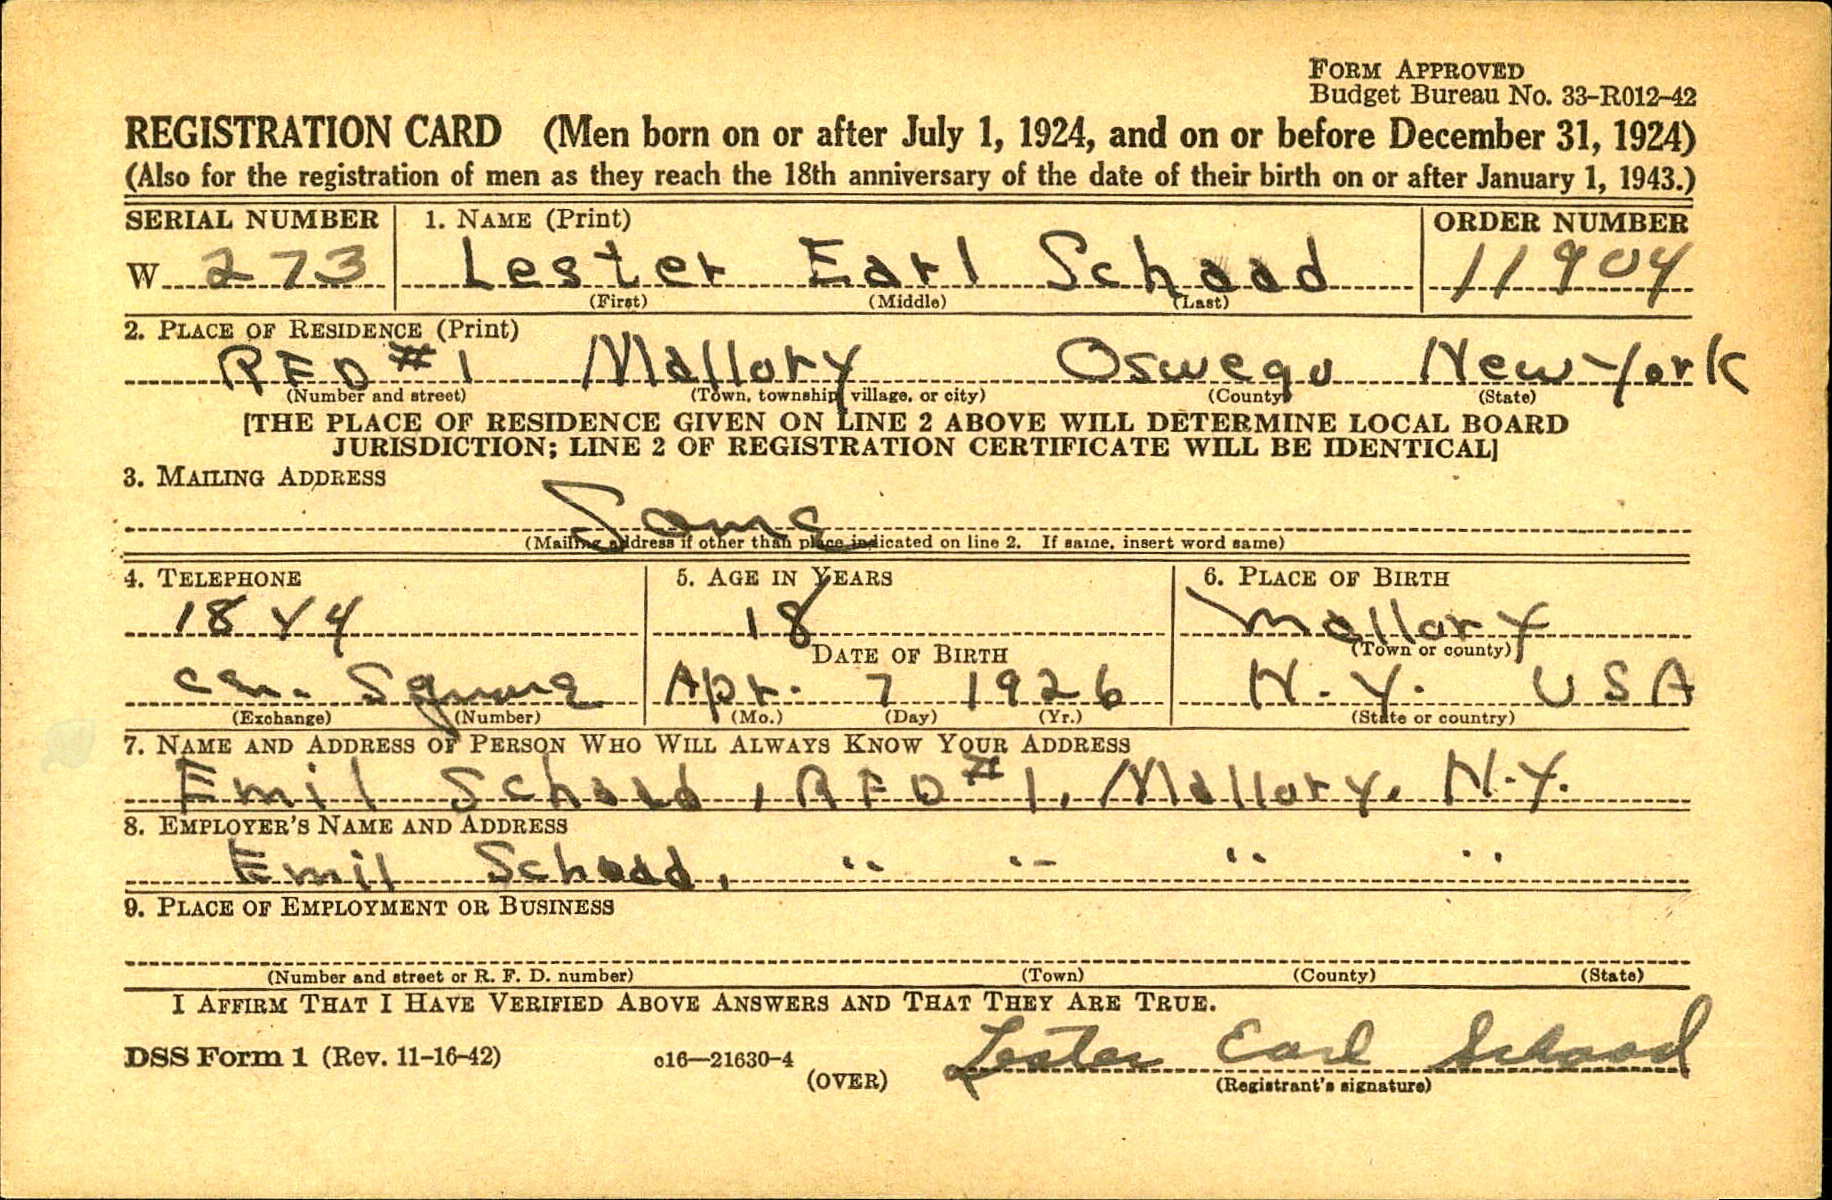 FORM APPROVED
Budget Bureau No. 33-R012-42
REGISTRATION CARD (Men born on or after July 1, 1924, and on or before December 31, 1924)
(Also for the registration of men as they reach the 18th anniversary of the date of their birth on or after January 1, 1943.)
SERIAL NUMBER 1. NAME (Print) ORDER NUMBER
W 273 Lester Earl Schaad 11904
(First) (Middle) (Last)
2. PLACE OF RESIDENCE (Print)
RFD #1 Mallory Oswego New York
(Number and street) (Town, township, village, or city) (County) (State)
[THE PLACE OF RESIDENCE GIVEN ON LINE 2 ABOVE WILL DETERMINE LOCAL BOARD
JURISDICTION; LINE 2 OF REGISTRATION CERTIFICATE WILL BE IDENTICAL]
3. MAILING ADDRESS
Same
(Mailing address if other than place indicated on line 2. If same, insert word same)
4. TELEPHONE 5. AGE IN YEARS 6. PLACE OF BIRTH
18 Y 4 18 Mallory
DATE OF BIRTH (Town or county)
Cen. Square Apr. 7 1926 N.Y. USA
(Exchange) (Number) (Mo.) (Day) (Yr.) (State or country)
7. NAME AND ADDRESS OF PERSON WHO WILL ALWAYS KNOW YOUR ADDRESS
Emil Schaad, RFD #1, Mallory, N.Y.
8. EMPLOYER'S NAME AND ADDRESS
Emil Schaad, " " " "
9. PLACE OF EMPLOYMENT OR BUSINESS
(Number and street or R. F. D. number) (Town) (County) (State)
I AFFIRM THAT I HAVE VERIFIED ABOVE ANSWERS AND THAT THEY ARE TRUE.
DSS Form 1 (Rev. 11-16-42) c16—21630-4 Lester Earl Schaad
(OVER) (Registrant's signature)